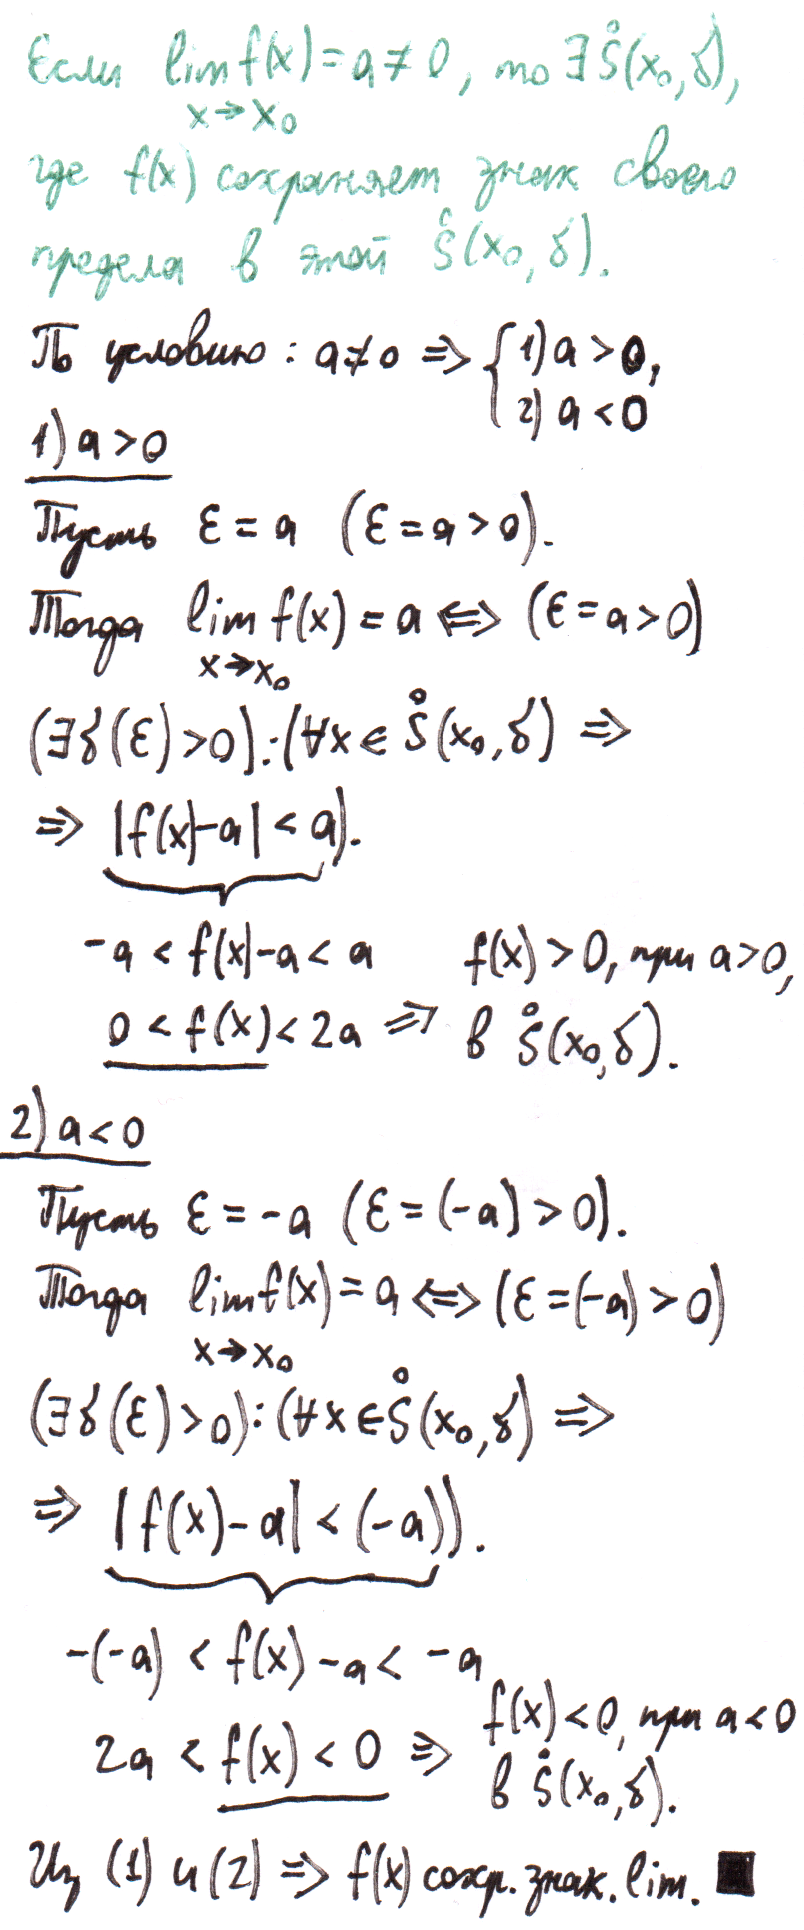 Если lim f(x) = a ≠ 0, то ∃ S̊(x₀, δ),
x→x₀
где f(x) сохраняет знак своего
предела в этой S̊(x₀, δ).
По условию: a ≠ 0 ⇒ { 1) a > 0,
2) a < 0
1) a > 0
Пусть ε = a (ε = a > 0).
Тогда lim f(x) = a ⇔ (ε = a > 0)
x→x₀
(∃δ(ε) > 0):(∀x ∈ S̊(x₀, δ) ⇒
⇒ |f(x)-a| < a).
-a < f(x)-a < a
f(x) > 0, при a > 0,
0 < f(x) < 2a ⇒ в S̊(x₀, δ).
2) a < 0
Пусть ε = -a (ε = (-a) > 0).
Тогда lim f(x) = a ⇔ (ε = (-a) > 0)
x→x₀
(∃δ(ε) > 0):(∀x ∈ S̊(x₀, δ) ⇒
⇒ |f(x)-a| < (-a)).
-(-a) < f(x)-a < -a
f(x) < 0, при a < 0
2a < f(x) < 0 ⇒ в S̊(x₀, δ).
Из (1) и (2) ⇒ f(x) сохр. знак. lim. ■